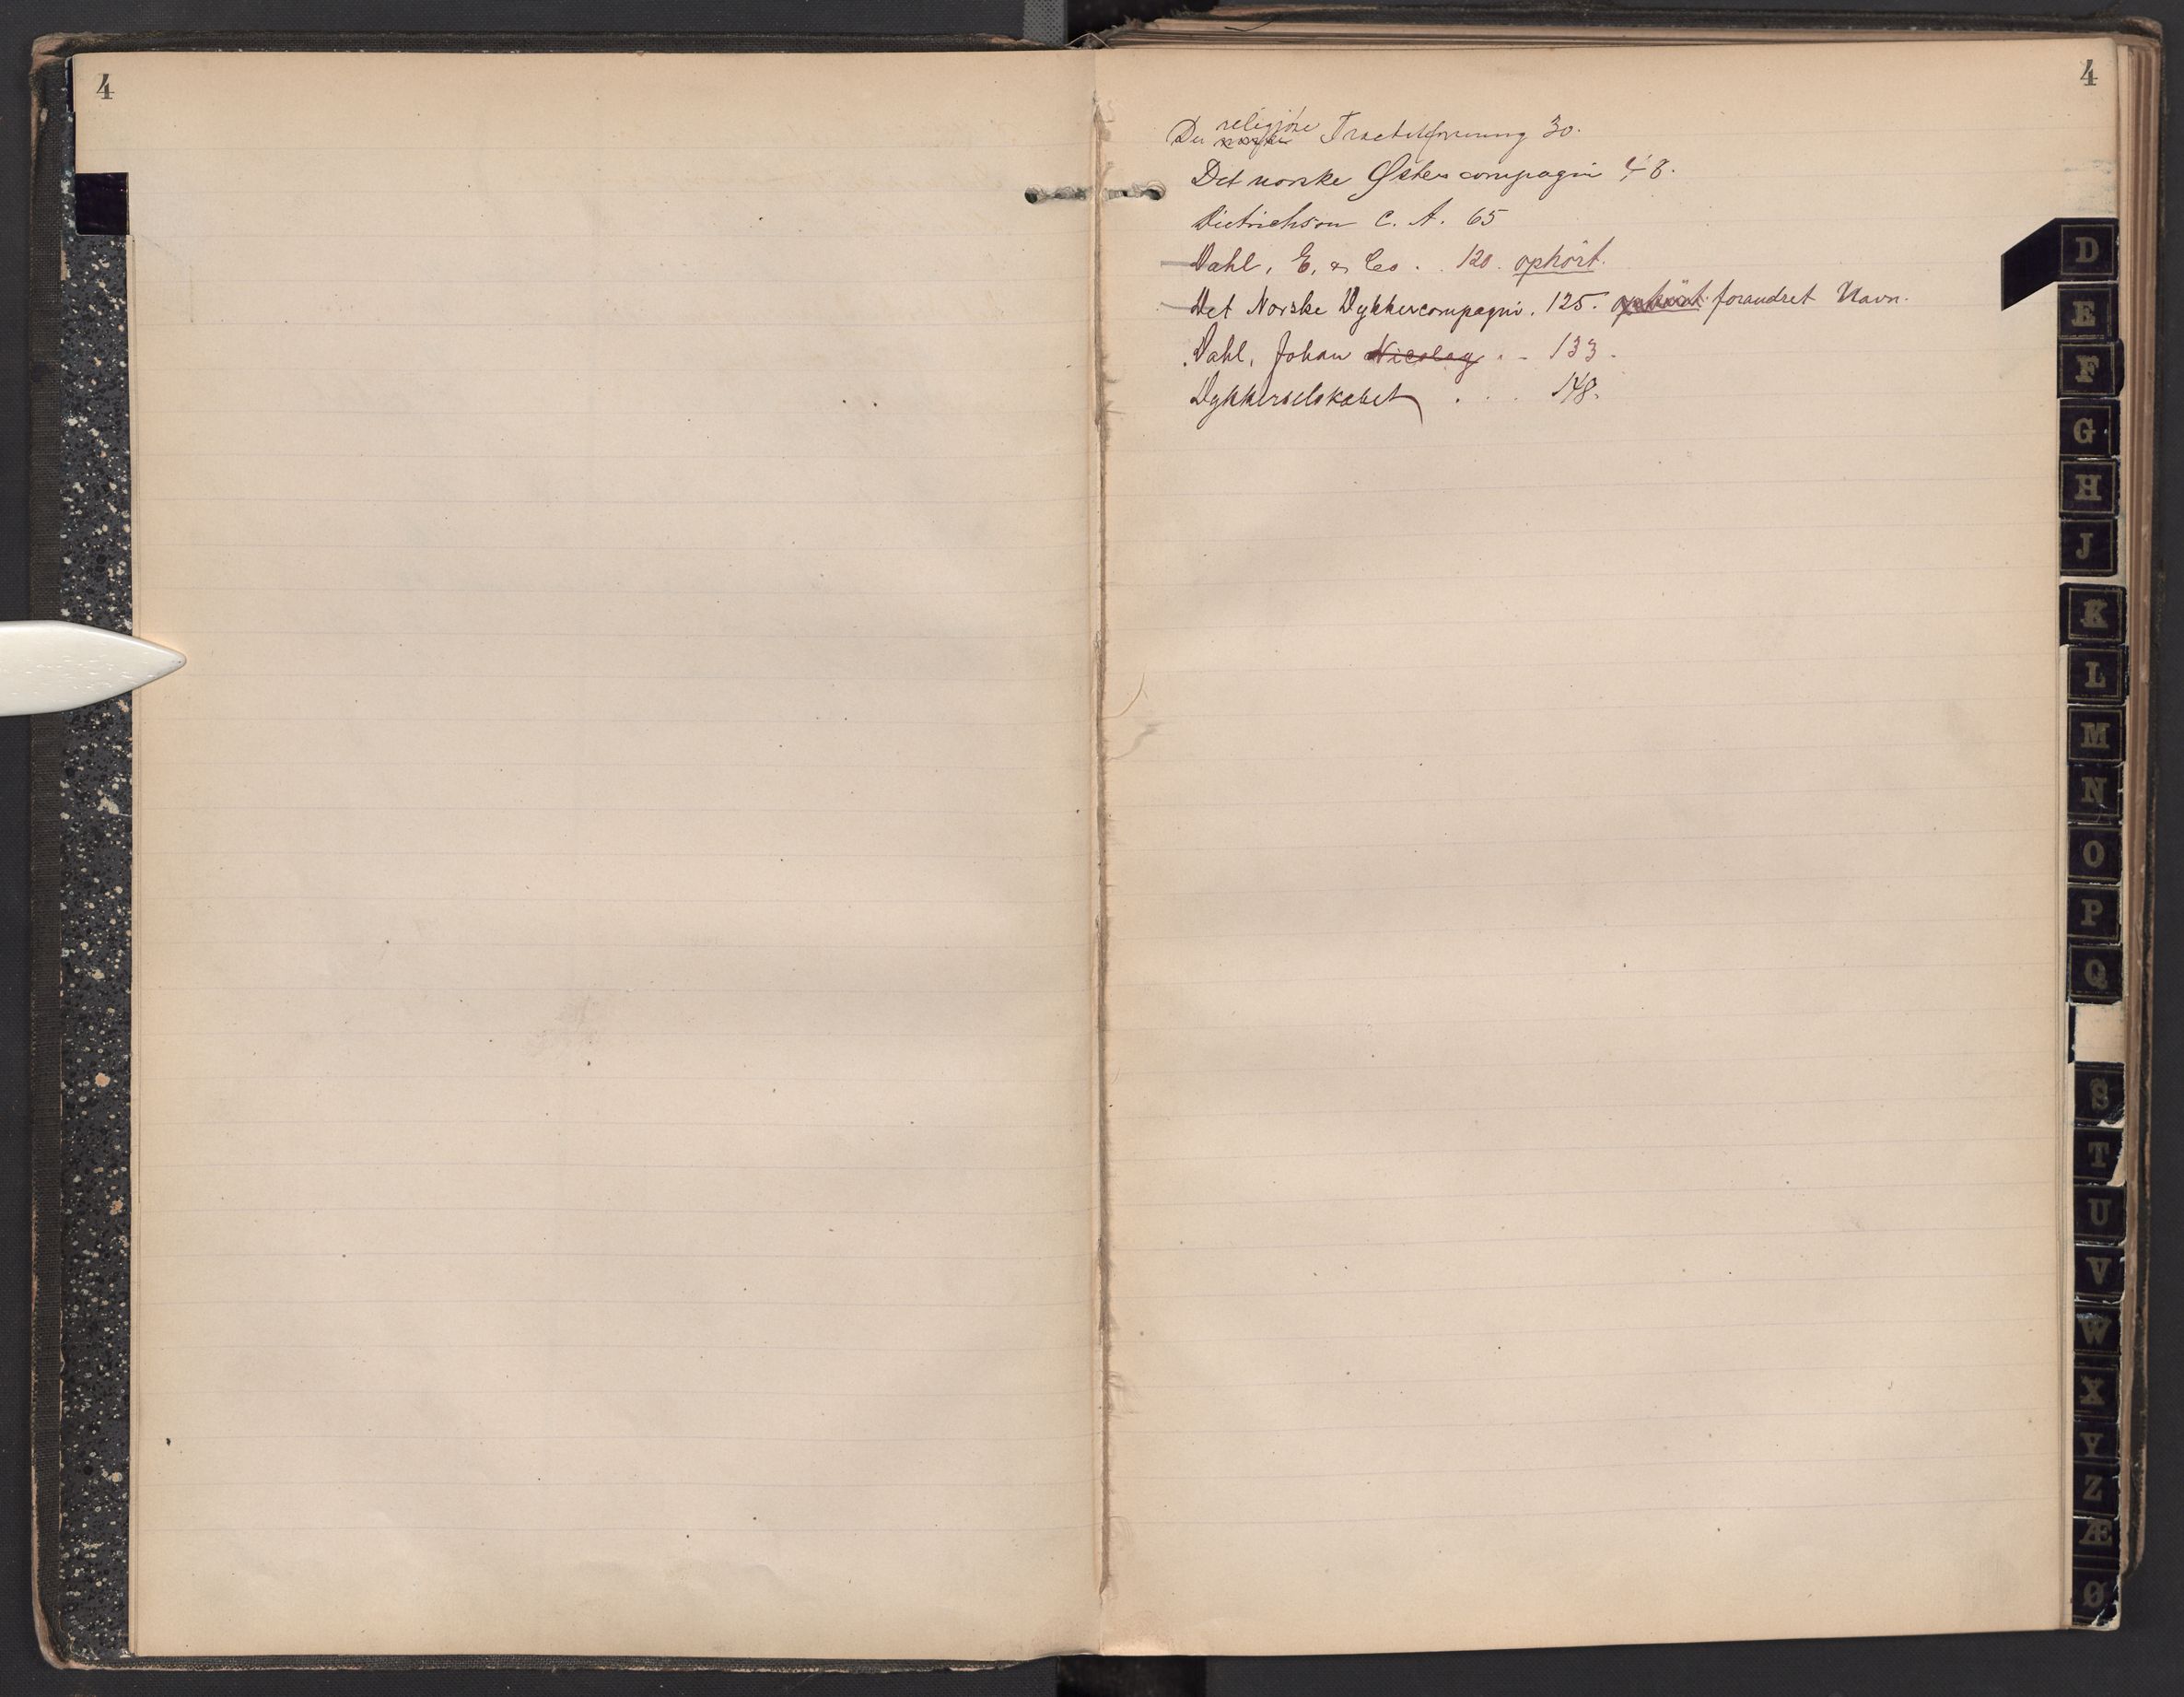 4
4
Den religiøse norske Tractatforening 30.
Det norske Østers compagni 48.
Dietrichson C. A. 65
Dahl, E. & Co. . 120. ophört.
Det Norske Dykkercompagni. 125. ophört. forandret Navn.
Dahl, Johan Nicolay . - 133.
Dykkerselskabet . . . 148.
D
E
F
G
H
J
K
L
M
N
O
P
Q
S
T
U
V
W
X
Y
Z
Æ
Ø